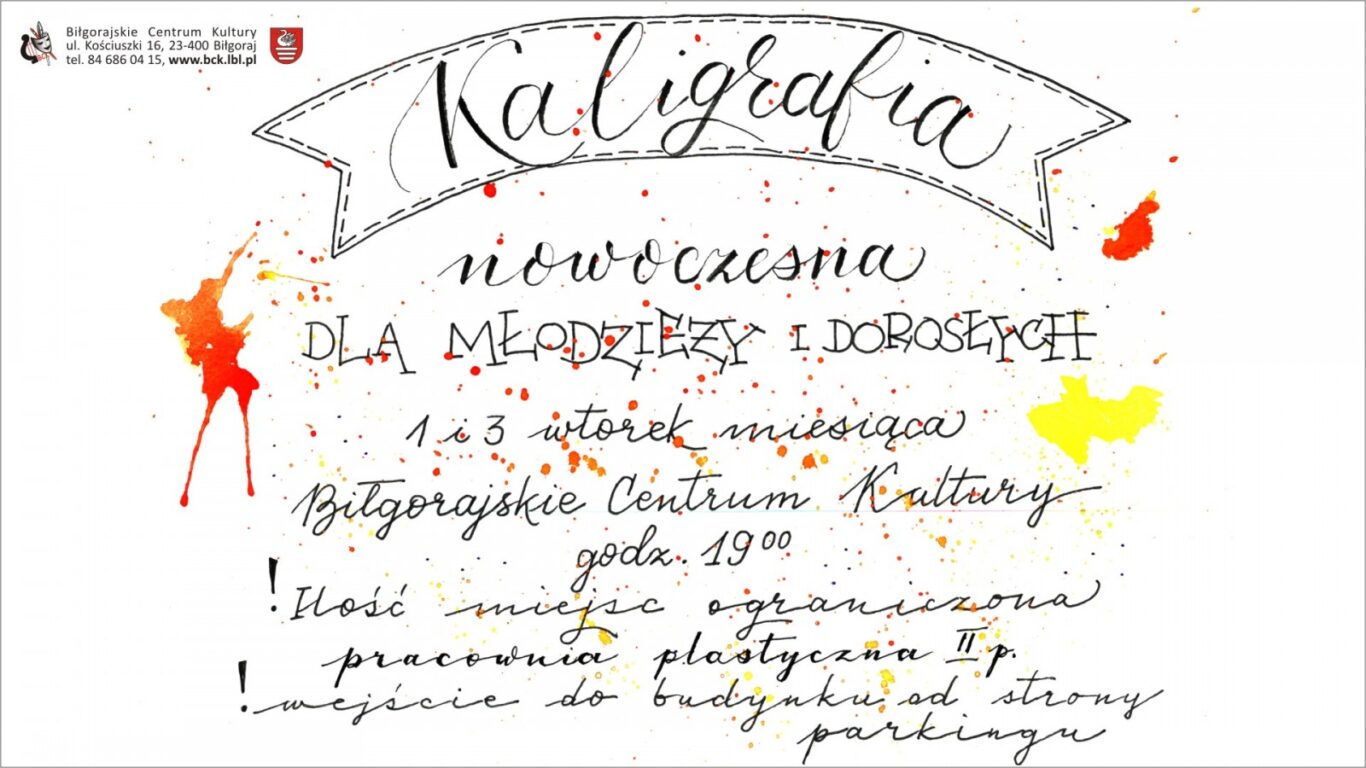 Biłgorajskie Centrum Kultury
ul. Kościuszki 16, 23-400 Biłgoraj
tel. 84 686 04 15, www.bck.lbl.pl
Kaligrafia
nowoczesna
DLA MŁODZIĘŻY I DOROSŁYCH
1 i 3 wtorek miesiąca
Biłgorajskie Centrum Kultury
godz. 19⁰⁰
! Ilość miejsc ograniczona
pracownia plastyczna II p.
! wejście do budynku od strony
parkingu